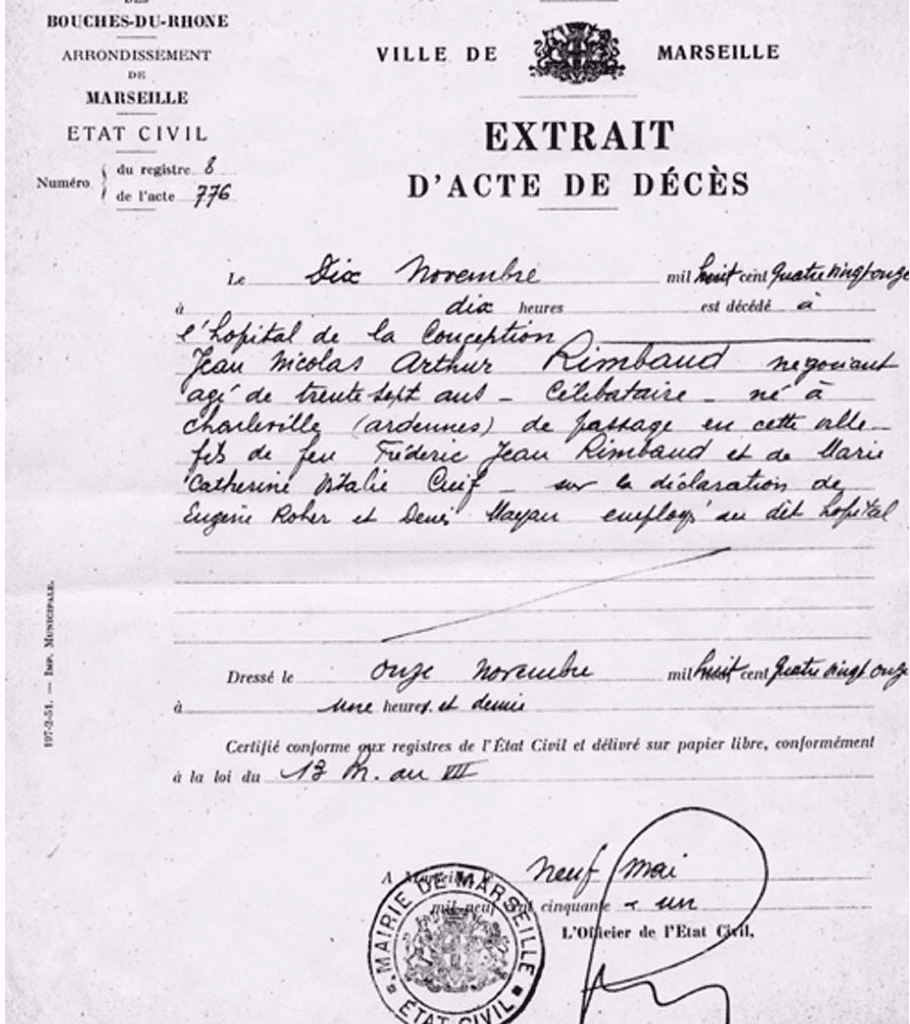 DES
BOUCHES-DU-RHONE
ARRONDISSEMENT
DE
MARSEILLE
ETAT CIVIL
Numéro
du registre 8
de l'acte 776
VILLE DE MARSEILLE
EXTRAIT
D'ACTE DE DÉCÈS
Le Dix Novembre mil huit cent quatre vingt onze
à dix heures est décédé à
l'hopital de la Conception
Jean Nicolas Arthur Rimbaud negociant
agé de trente sept ans - Célibataire - né à
Charleville (ardennes) de passage en cette ville -
fils de feu Fréderic Jean Rimbaud et de Marie
Catherine Vitalie Cuif - sur la déclaration de
Eugène Rober et Denis Mayan employé au dit hopital
Dressé le onze novembre mil huit cent quatre vingt onze
à une heures et demie
Certifié conforme aux registres de l'État Civil et délivré sur papier libre, conformément
à la loi du 13 au VII
A Marseille, neuf mai
mil neuf cent cinquante - un
L'Officier de l'Etat Civil,
MAIRIE DE MARSEILLE
ÉTAT CIVIL
197-2-51. — IMP. MUNICIPALE.